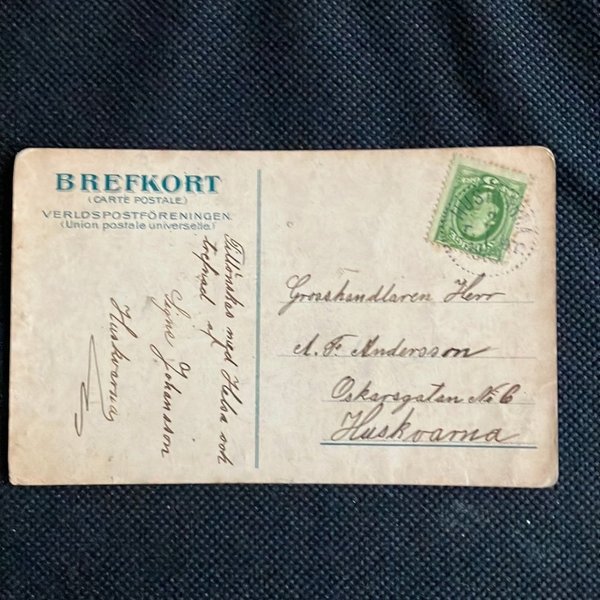 BREFKORT
(CARTE POSTALE)
VERLDSPOSTFÖRENINGEN.
(Union postale universelle)
Tillönskas med Helsa och
trefnad af
Signe Johansson
Huskvarna
Grosshandlaren Herr
A. F. Andersson
Oskarsgatan No 6
Huskvarna